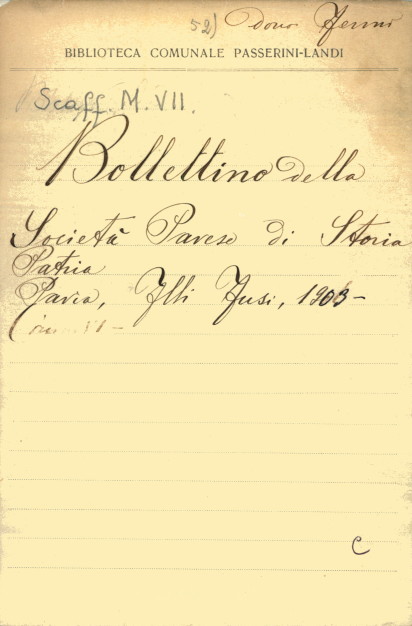 52) dono Fermi
BIBLIOTECA COMUNALE PASSERINI-LANDI
Scaff. M. VII.
Bollettino della
Società Pavese di Storia
Patria
Pavia, Flli Fusi, 1903-
C